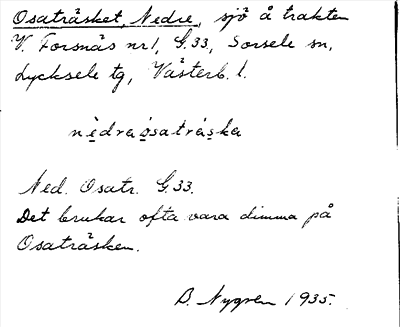 Osaträsket, Nedre, sjö å trakten
V. Forsnäs nr 1, G.33, Sorsele sn,
Lycksele tg, Västerb. l.
nẹdraọsatrạ̈ska
Ned. Osatr. G 33.
Det brukar ofta vara dimma på
Osaträsken.
B. Nygren 1935.